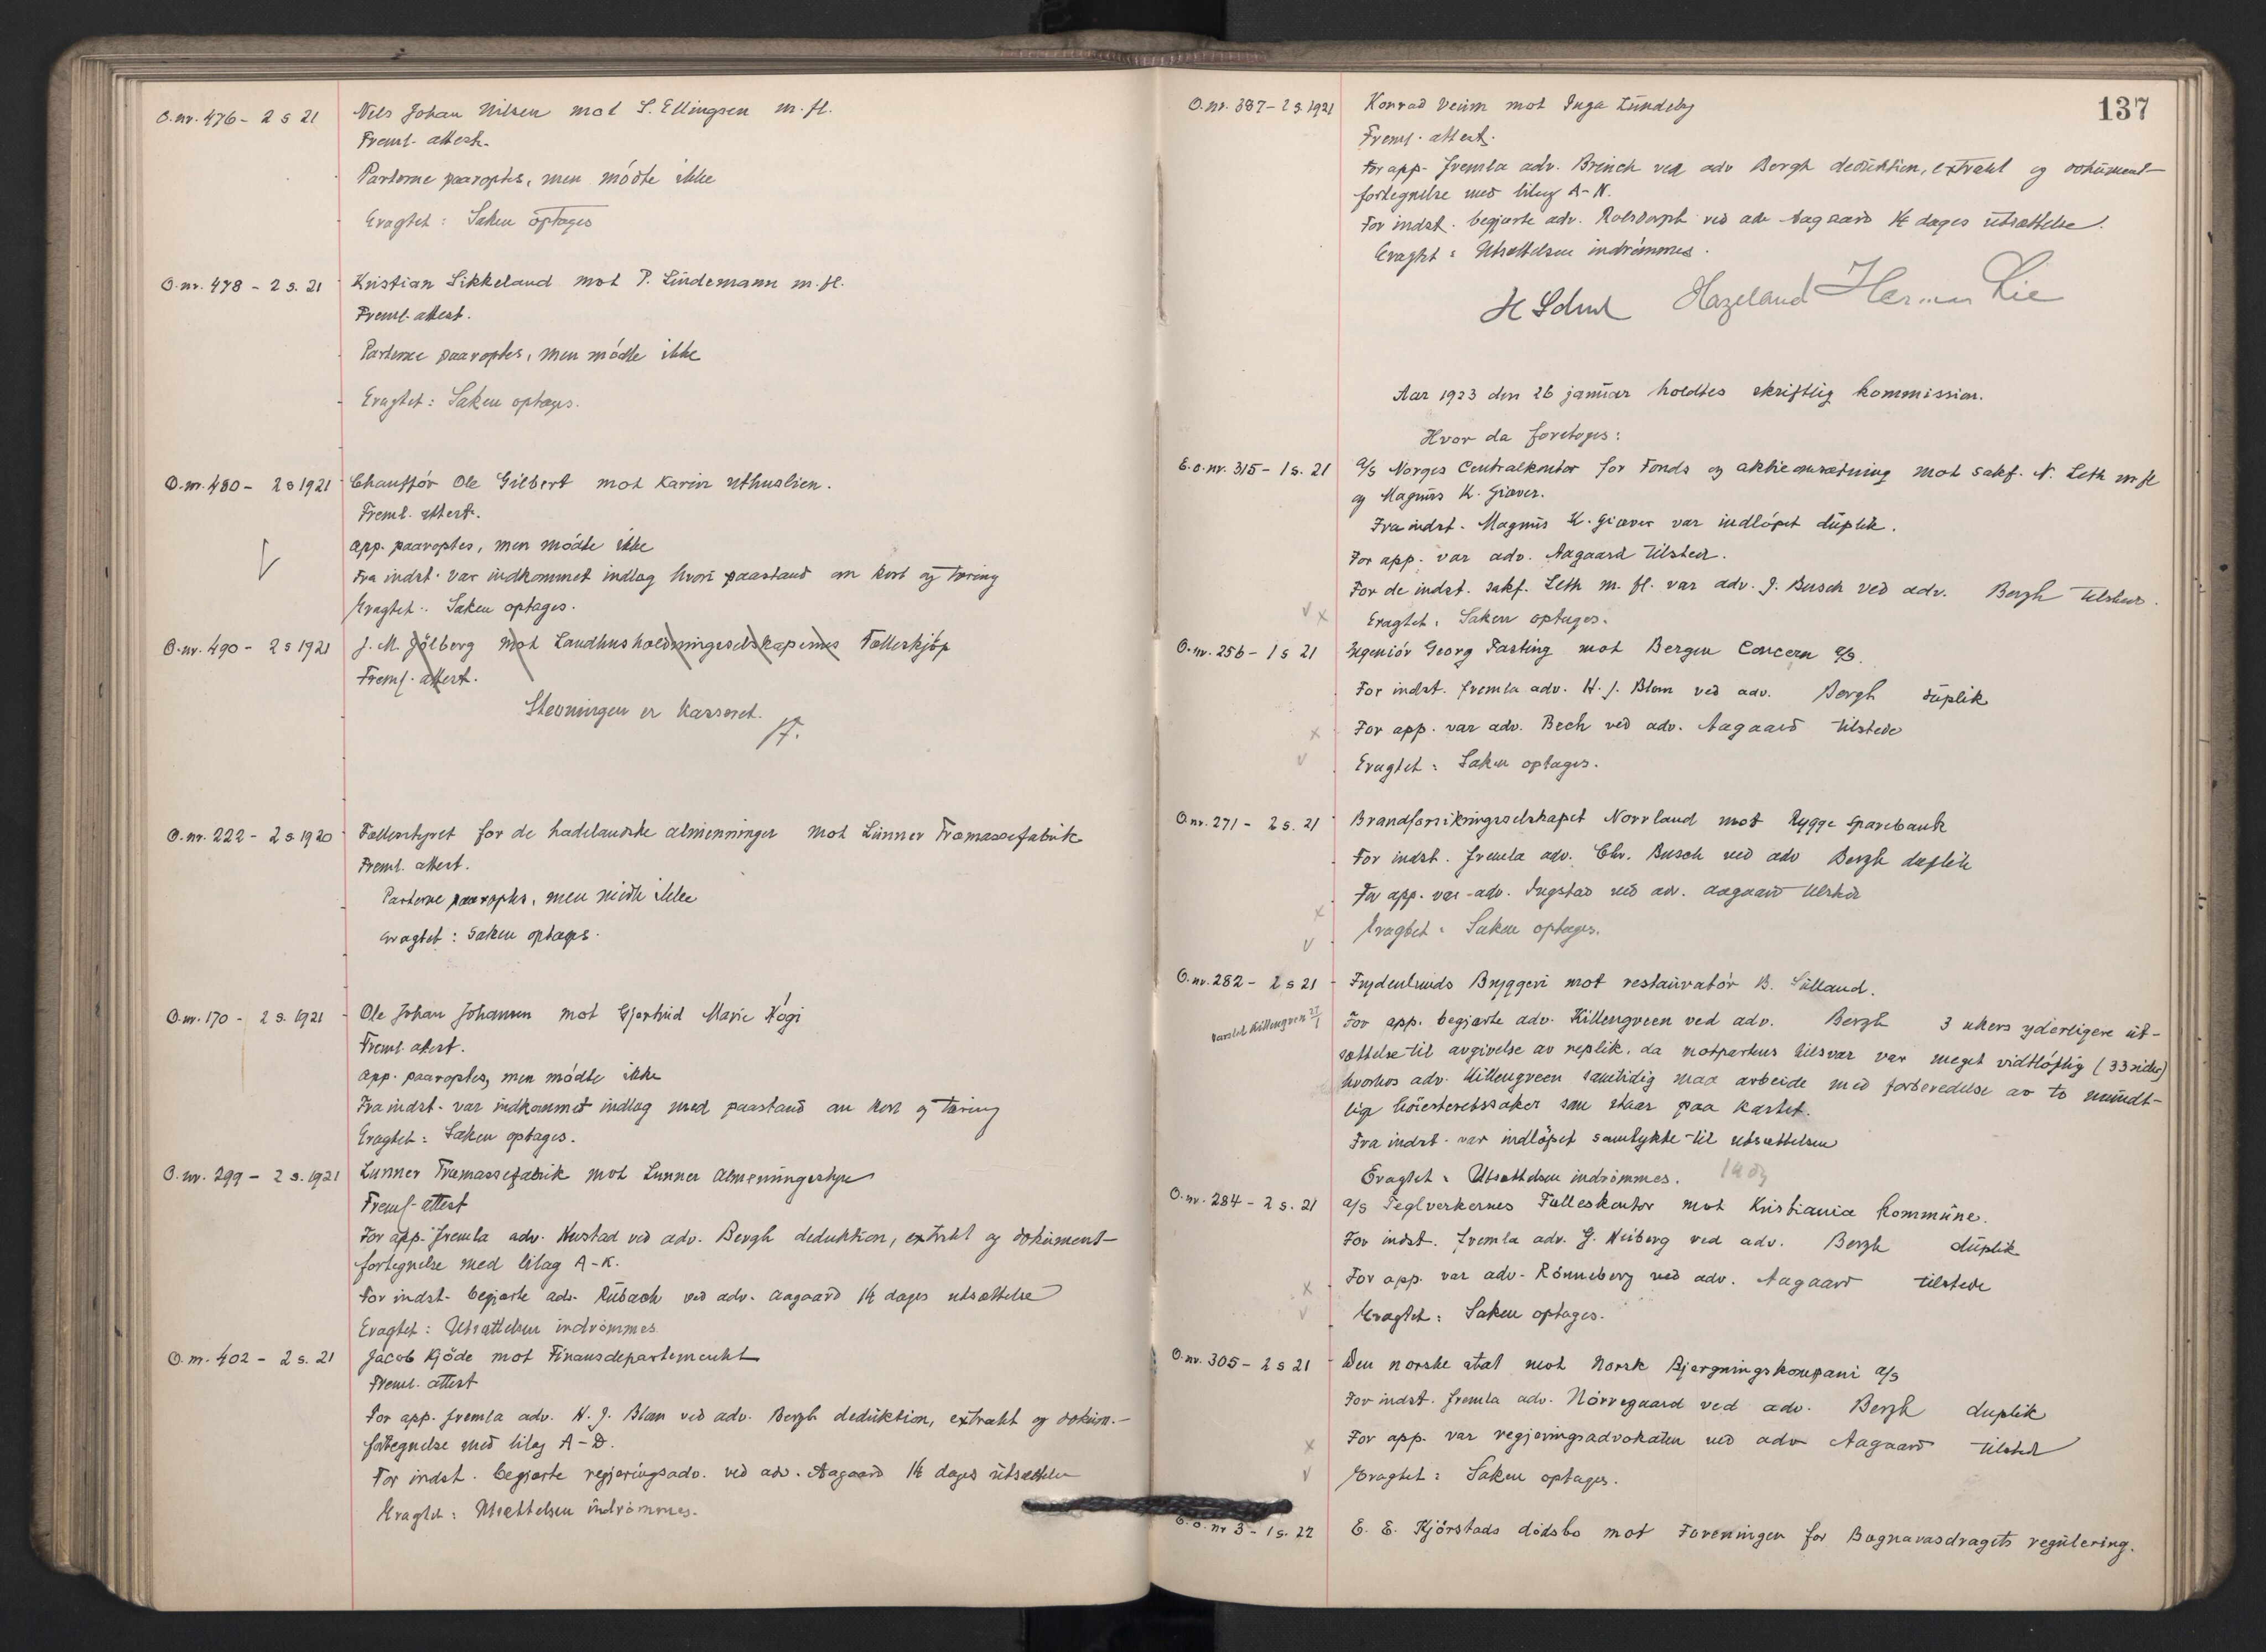 O.nr. 476 - 2 s 21 Nils Johan Nilsen mot S. Ellingsen m. fl.
Freml. attest.
Parterne paaroptes, men mödte ikke
Eragtet: Saken optages
O.nr. 478 - 2 s. 21 Kristian Sikkeland mot P. Lindemann m. fl.
Freml. attest.
Parterne paaroptes, men mödte ikke
Eragtet: Saken optages.
O.nr. 480 - 2 s 1921 Chaufför Ole Gilbert mot Karin Uthuslien.
Freml. attest.
App. paaroptes, men mödte ikke
Fra indst. var indkommet indlag hvori paastand om kost og tæring
Eragtet: Saken optages.
O.nr. 490 - 2 s 1921 J. M. Jölberg mot Landhusholdningsselskapernes Fælleskjöp
Freml. attest.
Stevningen er kasseret.
O.nr. 222 - 2 s 1920 Fællesstyret for de hadelandske almenninger mot Lunner Træmassefabrik
Freml. attest.
Parterne paaroptes, men mödte ikke
Eragtet: Saken optages.
O.nr. 170 - 2 s. 1921 Ole Johan Johansen mot Gjertrud Marie
Freml. attest.
App. paaroptes, men mödte ikke
Fra indst. var indkommet indlag med paastand om kost og tæring
Eragtet: Saken optages.
O.nr. 299 - 2 s. 1921 Lunner Træmassefabrik mot Lunner Almenningsstyre
Freml. attest
For app. fremla adv. Kustad ved adv. Bergh deduktion, extrakt og dokument-
fortegnelse med bilag A-K.
For indst. begjærte adv. Rubach ved adv. Aagaard 14 dages utsættelse
Eragtet: Utsættelsen indrömmes.
O.nr. 402 - 2 s. 21 Jacob Kjöde mot Finansdepartementet
Freml. attest
For app. fremla adv. H. J. Blom ved adv. Bergh deduktion, extrakt og dokum.-
fortegnelse med bilag A-D.
For indst. begjærte regjeringsadv. ved adv. Aagaard 14 dages utsættelse
Eragtet: Utsættelsen indrömmes.
137
O.nr. 387 - 2 s. 1921 Konrad Veum mot Inga Lundeby
Freml. attest.
For app. fremla adv. Brinch ved adv Bergh deduktion, extrakt og dokument-
fortegnelse med bilag A-N.
For indst. begjærte adv. Rolsdorph ved adv Aagaard 14 dages utsættelse.
Eragtet: Utsættelsen indrömmes.
Hazeland Herman Lie
Aar 1923 den 26 januar holdtes skriftlig kommission.
Hvor da foretoges:
E.o.nr. 315 - 1 s. 21 A/S Norges Centralkontor for Fonds og aktieomsætning mot sakf. N. Leth m fl
og Magnus K. Giæver.
Fra indst. Magnus K. Giæver var indlöpet duplik.
For app. var adv. Aagaard tilstede.
For de indst. sakf. Leth m. fl. var adv. J. Busch ved adv. Bergh tilstede.
Eragtet: Saken optages.
O.nr. 256 - 1 s 21 Ingeniör Georg Fasting mot Bergen Concern A/S.
For indst. fremla adv. H. J. Blom ved adv. Bergh duplik
For app. var adv. Bech ved adv. Aagaard tilstede
Eragtet: Saken optages.
O.nr. 271 - 2 s. 21 Brandforsikringsselskapet Norrland mot Rygge Sparebank
For indst. fremla adv. Chr. Busch ved adv Bergh duplik
For app. var adv. Ingstad ved adv. Aagaard tilstede
Eragtet: Saken optages.
O.nr. 282 - 2 s 21 Frydenlunds Bryggeri mot restauratör B. Sülland.
Varslet Killengreen 27/1 For app. begjærte adv. Killengreen ved adv. Bergh 3 ukers yderligere ut-
sættelse til avgivelse av replik, da motpartens tilsvar var meget vidtlöftig (33 sider)
hvorhos adv. Killengreen samtidig maa arbeide med forberedelse av to mundt-
lige höiesteretssaker som staar paa kartet.
Fra indst. var indlöpet samtykke til utsættelsen
Eragtet: Utsættelsen indrömmes.
O.nr. 284 - 2 s. 21 A/S Teglverkernes Fælleskontor mot Kristiania kommune.
For indst. fremla adv. G. Heiberg ved adv. Bergh duplik
For app. var adv. Rönneberg ved adv. Aagaard tilstede
Eragtet: Saken optages.
O.nr. 305 - 2 s 21 Den norske stat mot Norsk Bjergningskompani A/S
For indst. fremla adv. Nörregaard ved adv. Bergh duplik
For app. var regjeringsadvokaten ved adv Aagaard tilstede
Eragtet: Saken optages.
E.o.nr 3 - 1 s. 22 E. E. Kjörstads dödsbo mot Foreningen for Bægnavasdragets regulering.